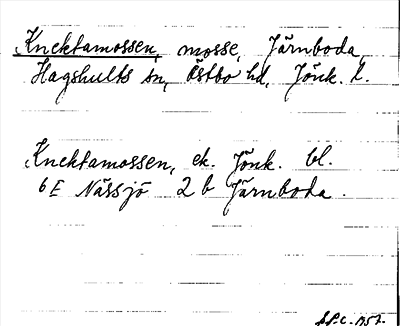 Knektamossen, mosse, Järnboda,
Hagshults sn, Östbo hd, Jönk. l.
Knektamossen, ek. Jönk. bl.
6E Nässjö 2 b Järnboda.